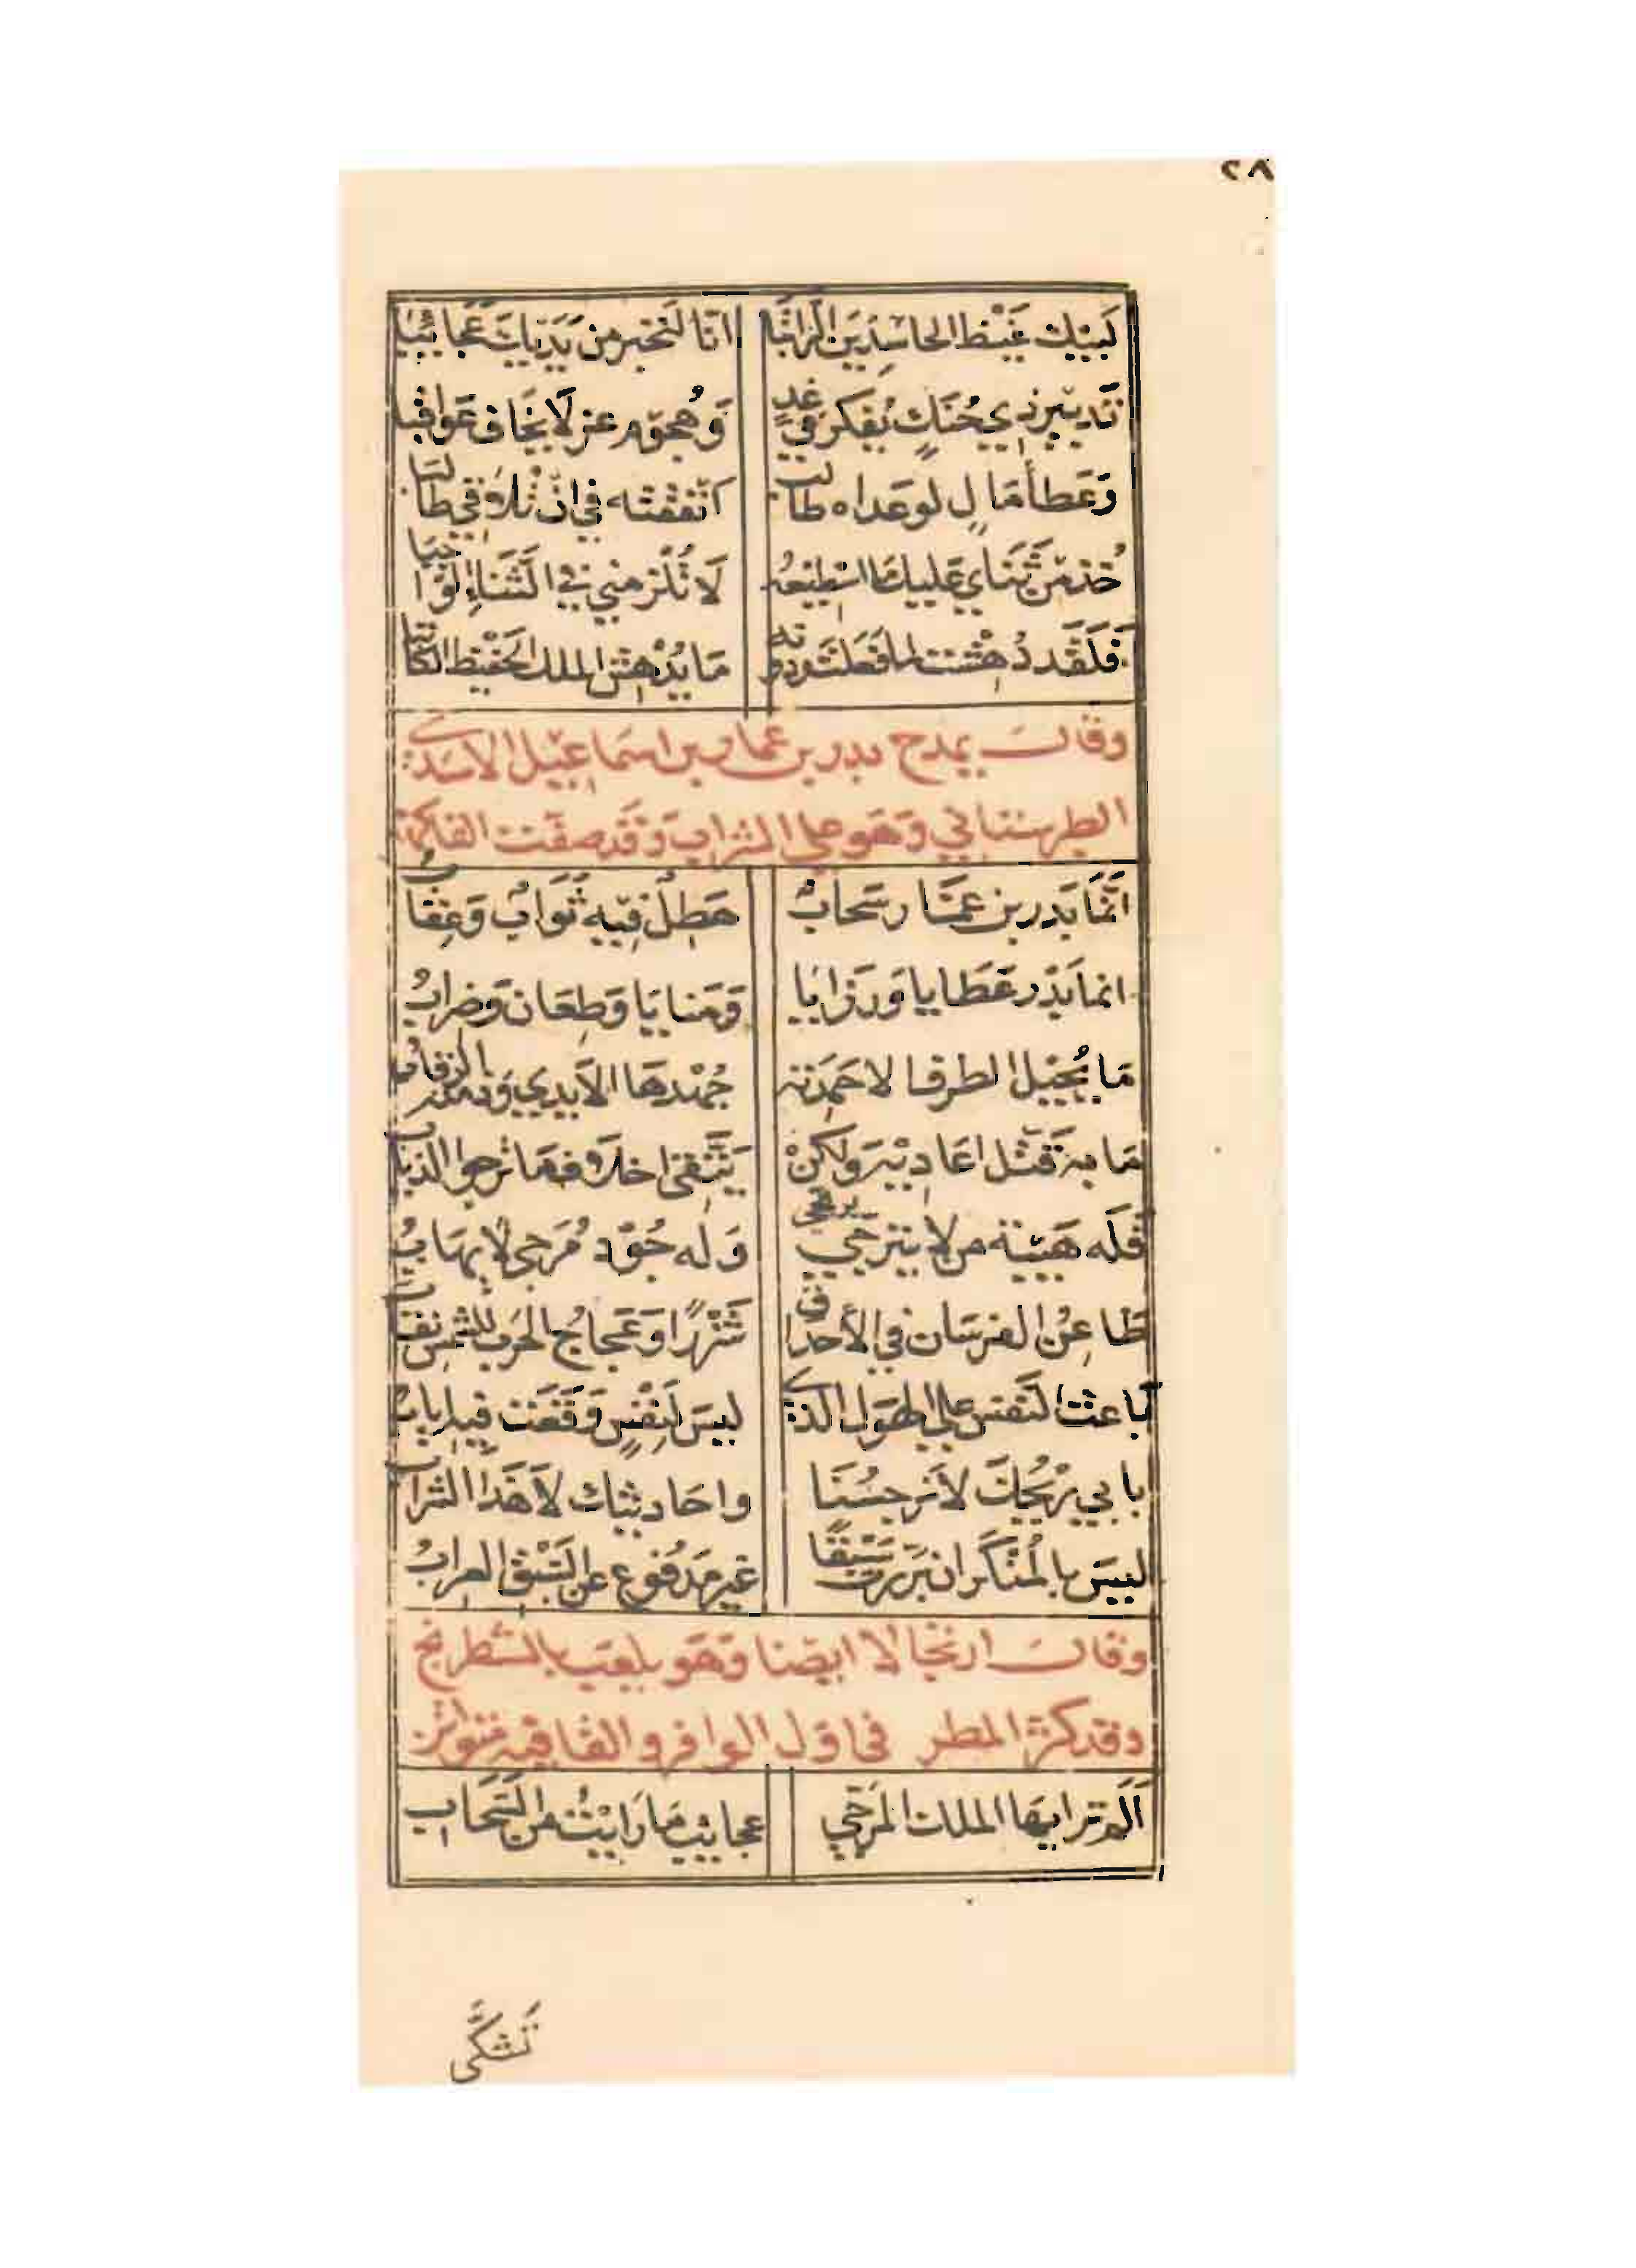 ٢٨
لَبَّيْكَ غَيْظَ الحاسِدِينَ الرّاتِبَا انّا لَنَخْبُرُ من يَدَيْكَ عَجَائِبَا
تَدبِيرُ ذِي حُنَكٍ يُفَكِّرُ في غدٍ وَهُجُومُ غرٍّ لَا يَخَافُ عَوَاقِبَا
وَعَطاءُ مَالٍ لو عَداه طالبٌ انفقتَه في ان تُلَاقِي طَالبَا
خُذ مِنْ ثَنَايَ عَلَيكَ مَا اسْطِيعُه لَا تُلْزِمَنِّي في الثَّنَاءِ الوَاجبَا
فَلَقَد دُهِشْتُ لما فَعَلْتَ ودونه مَا يُدْهِشُ الملك الحَفِيظَ الكَاتبَا
وقالَ يمدح بدر بن عمار بن اسماعيل الاسدى
الطبرستاني وَهَو على الشراب وَقَد صفّت الفاكهة
انّمَا بَدر بن عمّار سَحابٌ هَطِلٌ فِيهِ ثَوَابٌ وَعِقَابُ
انما بَدْر عَطَايا وَرَزايا وَمَنايَا وَطِعَان وَضِرابُ
مَا يُجِيلُ الطرف الا حَمِدَته جُهْدهَا الأيدي وَذمّته الرقابُ
مَا به قَتْل اعَادِيْهِ ولكِنْ يَتَّقي اخلاف مَا ترجوا الذيابُ
فَلَه هَيْبَة من لا يترجّى وَلَه جُوْدُ مُرَجّى لا يهَابُ
طَاعِنُ الفرسَان في الأحداق شَزْرًا وَعَجاجُ الحَرب للشمسِ نقابُ
بَاعثُ النَّفس على الهَوْل الذى ليسَ لنَفْسٍ وَقَعَت فيه ايابُ
بابي ريْحُكَ لا نَرجِسُنَا واحَاديثك لا هَذَا الشرابُ
ليسَ بالمُنْكَر ان برّزت سَبْقًا غير مَدفُوعٍ عن السَّبْق العرابُ
وقالَ ارتجالا ايضا وَهَو يلعَب بالشطرنج
وقد كثر المطر فى اول الوافر والقافيه متواتر
أَلَم تر ايهَا الملك المُرَجّى عجايب مَا رَايْتُ من السَّحَابِ
تَشَكَّى